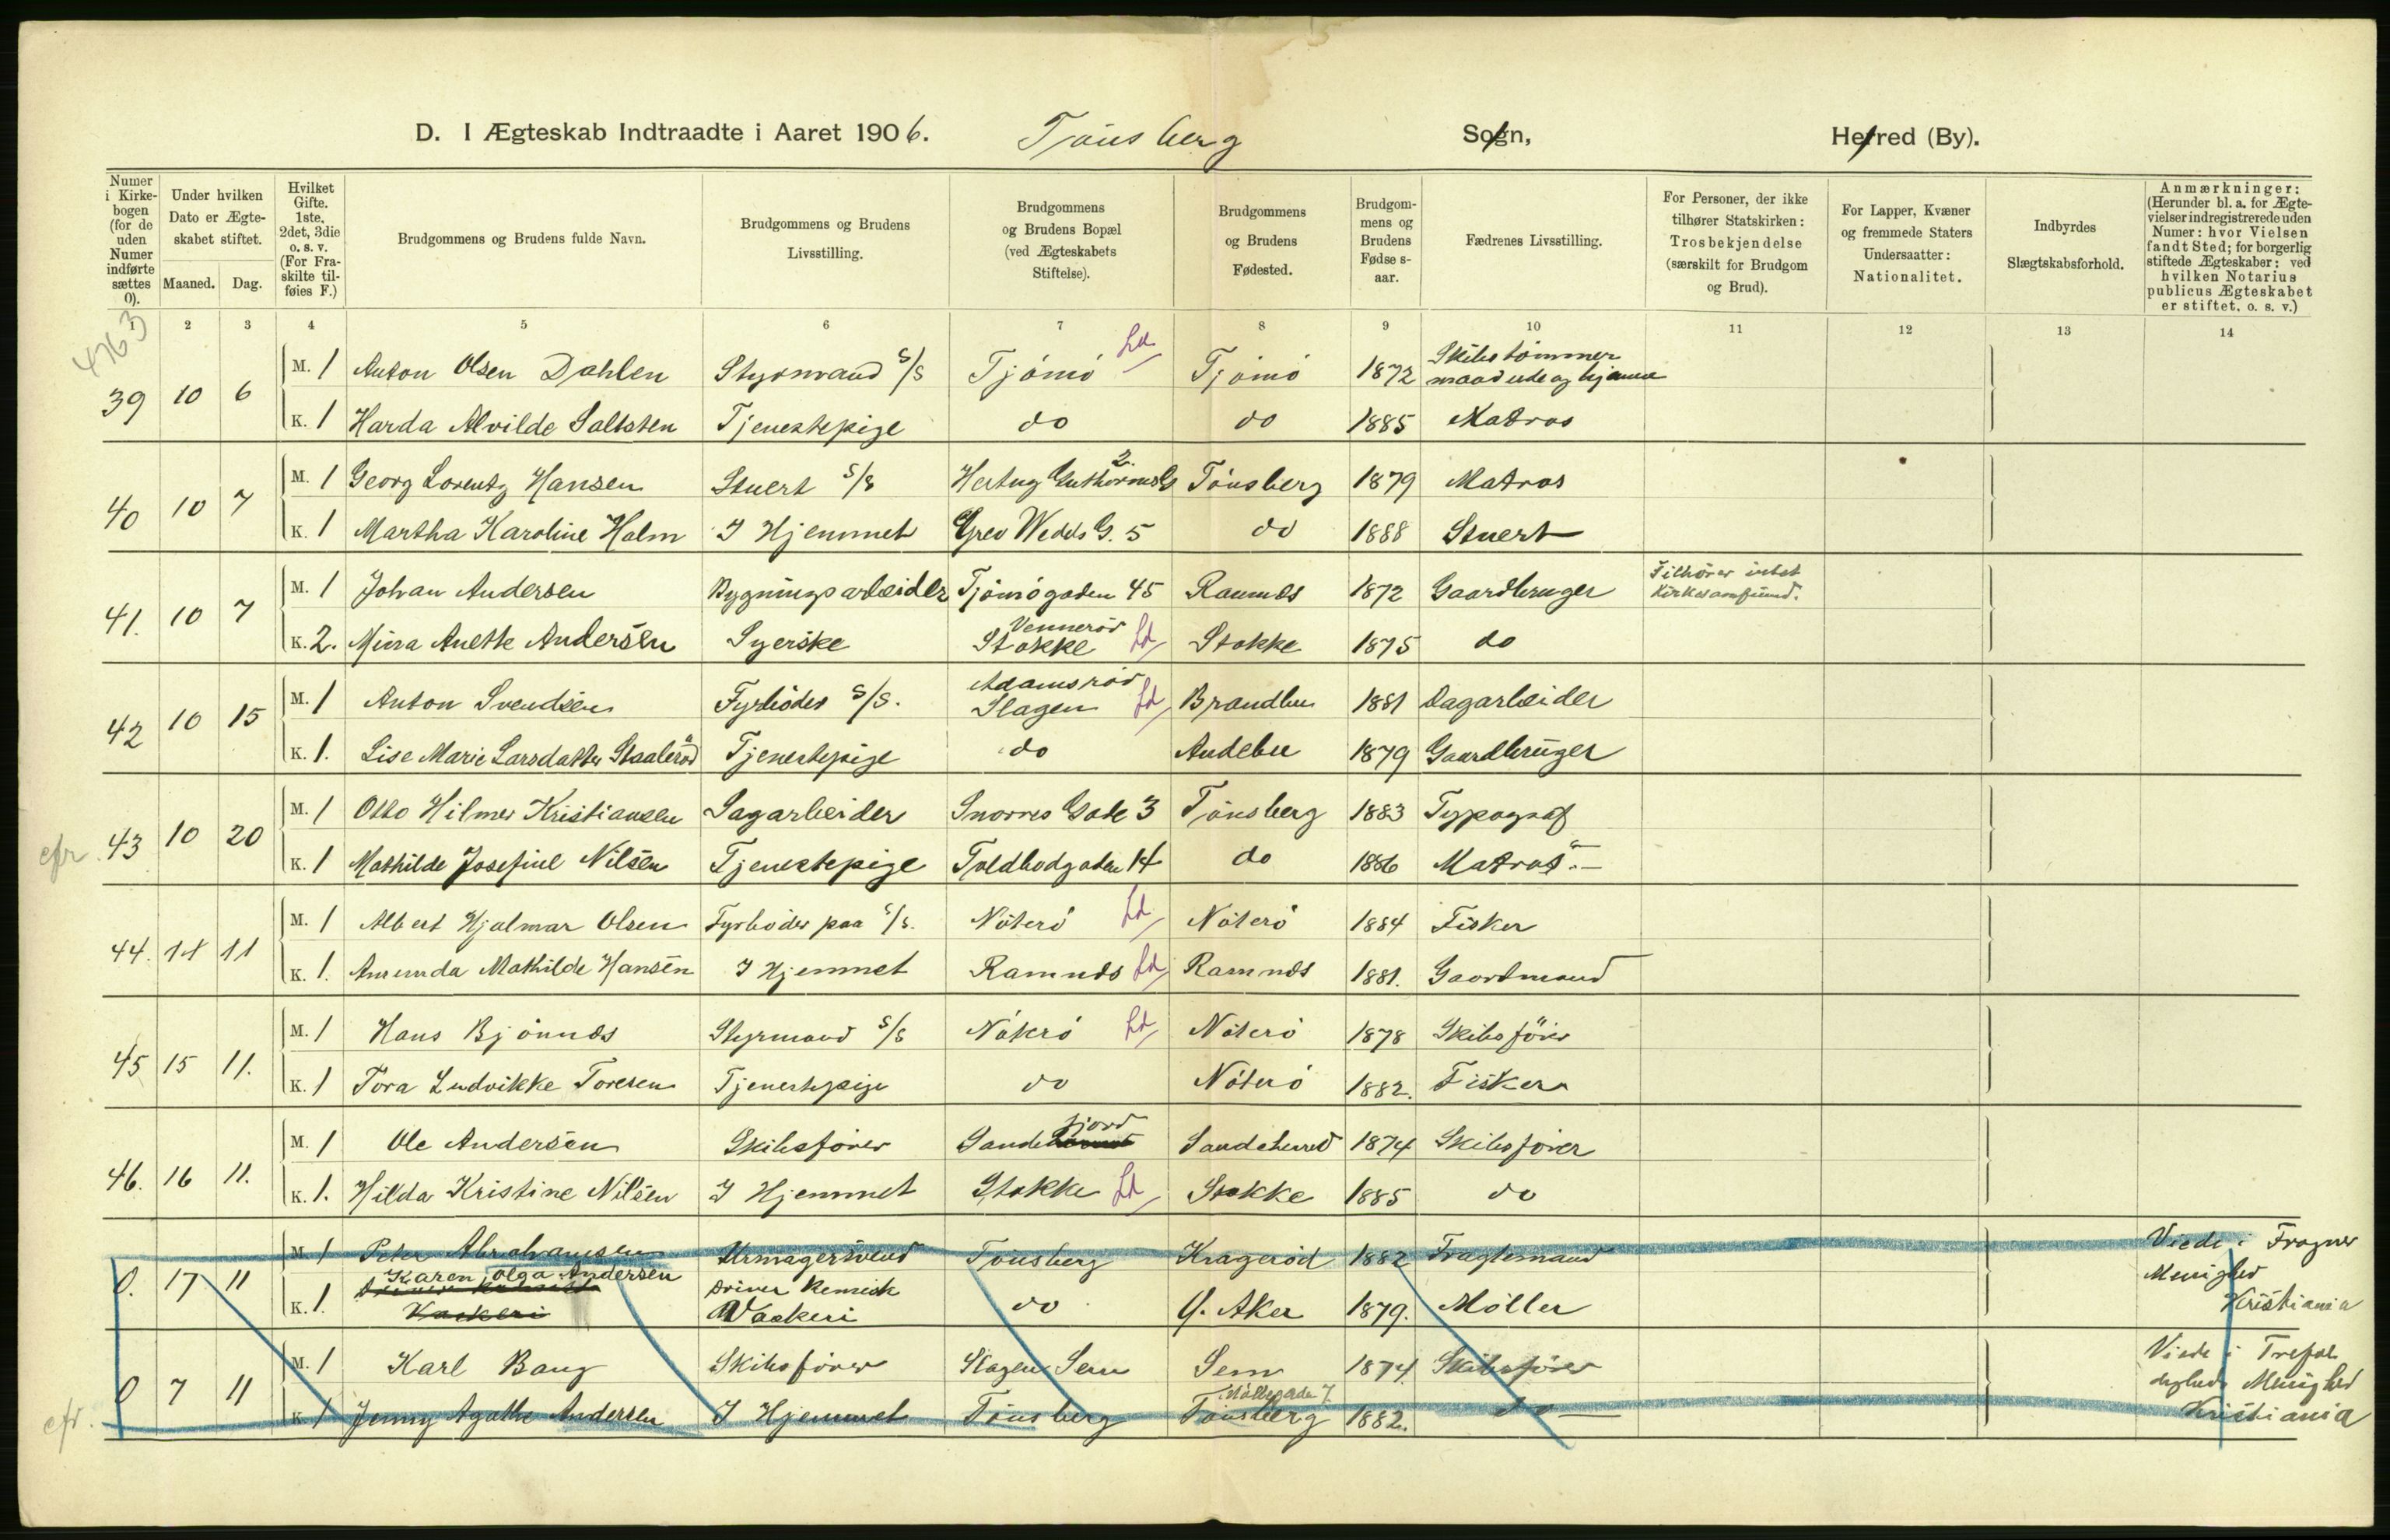 D. I Ægteskab Indtraadte i Aaret 1906. Tönsberg Sogn, Herred (By).
Numer i Kirkebogen (for de uden Numer indførte sættes 0).
Under hvilken Dato er Ægteskabet stiftet.
Maaned. Dag.
Hvilket Gifte. 1ste, 2det, 3die o. s. v. (For Fraskilte tilføies F.)
Brudgommens og Brudens fulde Navn.
Brudgommens og Brudens Livsstilling.
Brudgommens og Brudens Bopæl (ved Ægteskabets Stiftelse).
Brudgommens og Brudens Fødested.
Brudgommens og Brudens Fødselsaar.
Fædrenes Livsstilling.
For Personer, der ikke tilhører Statskirken: Trosbekjendelse (særskilt for Brudgom og Brud).
For Lapper, Kvæner og fremmede Staters Undersaatter: Nationalitet.
Indbyrdes Slægtskabsforhold.
Anmærkninger: (Herunder bl. a. for Ægtevielser indregistrerede uden Numer: hvor Vielsen fandt Sted; for borgerlig stiftede Ægteskaber: ved hvilken Notarius publicus Ægteskabet er stiftet, o. s. v.)
1 2 3 4 5 6 7 8 9 10 11 12 13 14
4763
39 10 6 M. 1 Anton Olsen Dahlen Styrmand S/S Tjömö Ld Tjömö 1872 Skibstömmermand ude og hjemme
K. 1 Harda Alvilde Saltsten Tjenestepige do do 1885 Matros
40 10 7 M. 1 Georg Lorentz Hansen Stuert S/S Hertug Guthormsg 2. Tönsberg 1879 Matros
K. 1 Martha Karoline Holm I Hjemmet Grev Wedels G. 5 do 1888 Stuert
41. 10 7 M. 1 Johan Andersen Bygningsarbeider Tjömögaden 45 Ramnes 1872 Gaardbruger Tilhörer intet Kirkesamfund.
K. 2. Mina Anette Andersen Syerske Venneröd Stokke Ld Stokke 1875 do
42 10 15 M. 1 Anton Svendsen Fyrböder S/S. Adamsröd Slagen Ld Brandbu 1881 Dagarbeider
K. 1. Lise Marie Larsdatter Staaleröd Tjenestepige do Andebu 1879 Gaardbruger
cfr. 43 10 20 M. 1 Otto Hilmer Kristiansen Sagarbeider Snorres Gade 3 Tönsberg 1883 Typograf
K. 1 Mathilde Josefine Nilsen Tjenestepige Toldbodgaden 14 do 1886 Matros.—
44. 11 11 M. 1 Albert Hjalmar Olsen Fyrböder paa S/S. Nöterö Ld Nöterö 1884 Fisker
K. 1. Amunda Mathilde Hansen I Hjemmet Ramnes Ld Ramnes 1881. Gaardmand
45 15 11. M. 1 Hans Bjönnes Styrmand S/S Nöterö Ld Nöterö 1878 Skibsförer
K. 1 Tora Ludvikke Toresen Tjenestepige do Nöterö 1882. Fisker
46. 16 11. M. 1 Ole Andersen Skibsförer Sandefjord Sandeherred 1874 Skibsförer
K. 1. Hilda Kristine Nilsen I Hjemmet Stokke Ld Stokke 1885 do
0. 17 11 M. 1 Peter Abrahamsen Urmagersvend Tönsberg Krageröd 1882 Fragtemand Viede i Frogner Menighed Kristiania
K. 1. Karen Olga Andersen Driver Kemisk Vaskeri do Ø. Aker 1879. Möller
0 7 11 M. 1 Karl Bang Skibsförer Slagen Sem Sem 1874. Skibsförer Viede i Trefoldigheds Menighed Kristiania
cfr. K. 1 Jenny Agathe Andersen I Hjemmet Tönsberg Möllegade 7 Tönsberg 1882. do —